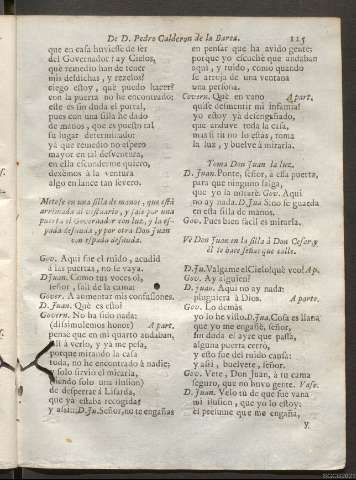 De D. Pedro Calderon de la Barca. 115
que en casa huviesse de ser
del Governador! ay Cielos,
què remedio han de tener
mis desdichas, y rezelos?
ciego estoy, què puedo hacer?
con la puerta no he encontrado;
este es sin duda el portal,
pues con una silla he dado
de manos, que es puesto tal
su lugar determinado:
yà que remedio no espero
mayor en tal desventura,
en ella esconderme quiero,
dexèmos à la ventura
algo en lance tan severo.
Metese en una silla de manos, que està
arrimada al vestuario, y sale por una
puerta el Governador con luz, y la es-
pada desnuda, y por otra Don Juan
con espada desnuda.
Gov. Aqui fue el ruido, acudid
à las puertas, no se vaya.
D. Juan. Como tus voces oì,
señor, salì de la cama:
Gover. A aumentar mis confusiones.
D. Juan. Què es esto?
Govern. No ha sido nada:
(dissimulemos honor) A part.
pensè que en mi quarto andaban,
salì à verlo, y yà me pesa,
porque mirando la casa
toda, no he encontrado à nadie;
y solo sirviò el mirarla,
(siendo solo una ilusion)
de despertar à Lisarda,
que yà estaba recogida:
y assi:: D. Ju. Señor, no te engañas
en pensar que ha avido gente;
porque yo escuchè que andaban
aqui, y ruido, como quando
se arroja de una ventana
una persona.
Govern. Què en vano A part.
quise desmentir mi infamia!
yo estoy yà desengañado,
que anduve toda la casa,
mas si tu no lo estàs, toma
la luz, y buelve à mirarla.
Toma Don Juan la luz.
D. Juan. Ponte, señor, à esta puerta,
para que ninguno salga,
que yo la mirarè. Gov. Aqui
no ay nada. D. Jua. Si no se guarda
en esta silla de manos.
Gov. Pues bien facil es mirarla.
Vè Don Juan en la silla à Don Cesar, y
èl le hace señas que calle.
D. Ju. Valgame el Cielo! què veo! Ap.
Gov. Ay alguien?
D. Juan. Aqui no ay nada:
pluguiera à Dios. A parte.
Gov. Lo demàs
yo lo he visto. D. Jua. Cosa es llana
que yo me engañè, señor,
sin duda el ayre que passa,
alguna puerta cerrò,
y esto fue del ruido causa:
y assi, buelvete, señor.
Gov. Vete, Don Juan, à tu cama
seguro, que no huvo gente. Vase.
D. Juan. Velo tu de que fue vana
mi ilusion, que yo lo estoy:
el presume que me engaña,
y